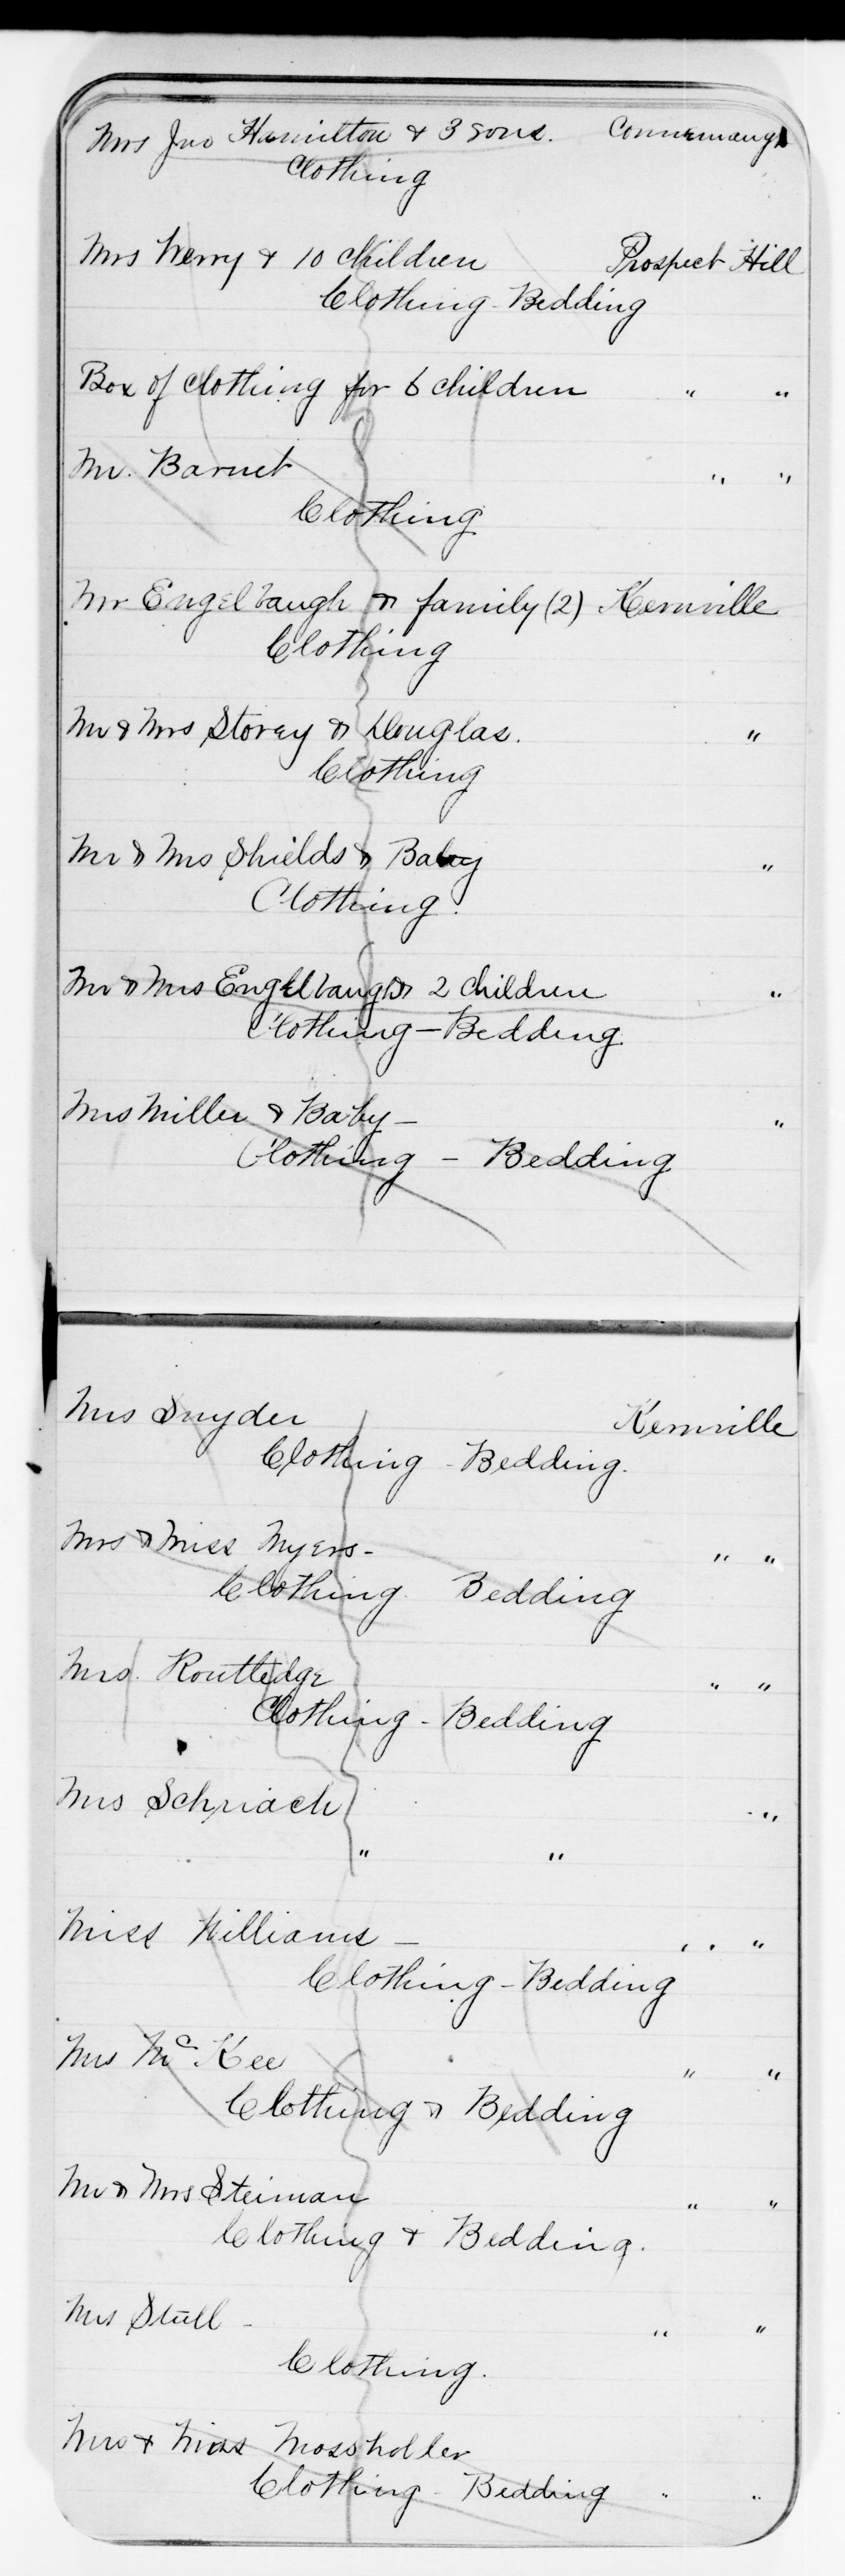 Mrs Jno Hamilton & 3 sons. Connemaugh
Clothing
Mrs Werry & 10 children Prospect Hill
Clothing - Bedding
Box of clothing for 6 children " "
Mr. Barnet " "
Clothing
Mr Engelbaugh & family (2) Kernville
Clothing
Mr & Mrs Storey & Douglas. "
Clothing
Mr & Mrs Shields & Baby "
Clothing.
Mr & Mrs Engelbaugh & 2 children "
Clothing - Bedding
Mrs Miller & Baby - "
Clothing - Bedding
Mrs Snyder Kernville
Clothing - Bedding.
Mrs & Miss Myers - " "
Clothing Bedding
Mrs. Routledge " "
Clothing - Bedding
Mrs Schriach "
" "
Miss Williams - " "
Clothing - Bedding
Mrs McKee " "
Clothing & Bedding
Mr & Mrs Steiman " "
Clothing & Bedding.
Mrs Stull - " "
Clothing.
Mrs & Miss Mossholler
Clothing - Bedding " "